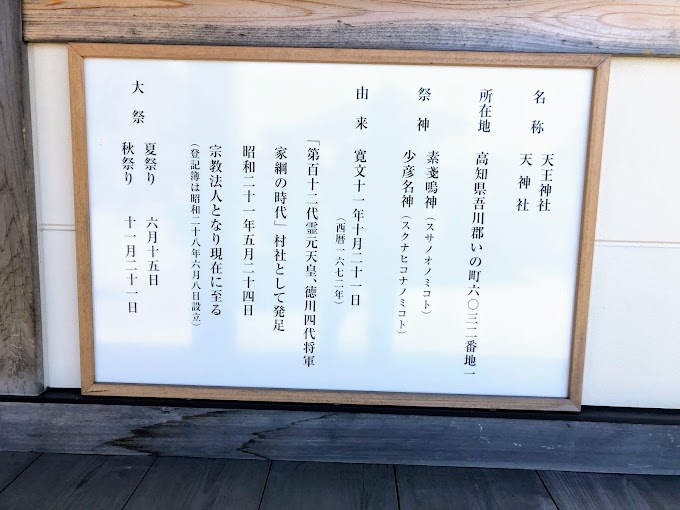 名称 天王神社
天神社
所在地 高知県吾川郡いの町六〇三二番地一
祭神 素戔嗚神(スサノオノミコト)
少彦名神(スクナヒコナノミコト)
由来 寛文十一年十月二十一日
(西暦一六七二年)
「第百十二代霊元天皇、徳川四代将軍
家綱の時代」村社として発足
昭和二十一年五月二十四日
宗教法人となり現在に至る
(登記簿は昭和二十八年六月八日設立)
大祭 夏祭り 六月十五日
秋祭り 十一月二十一日